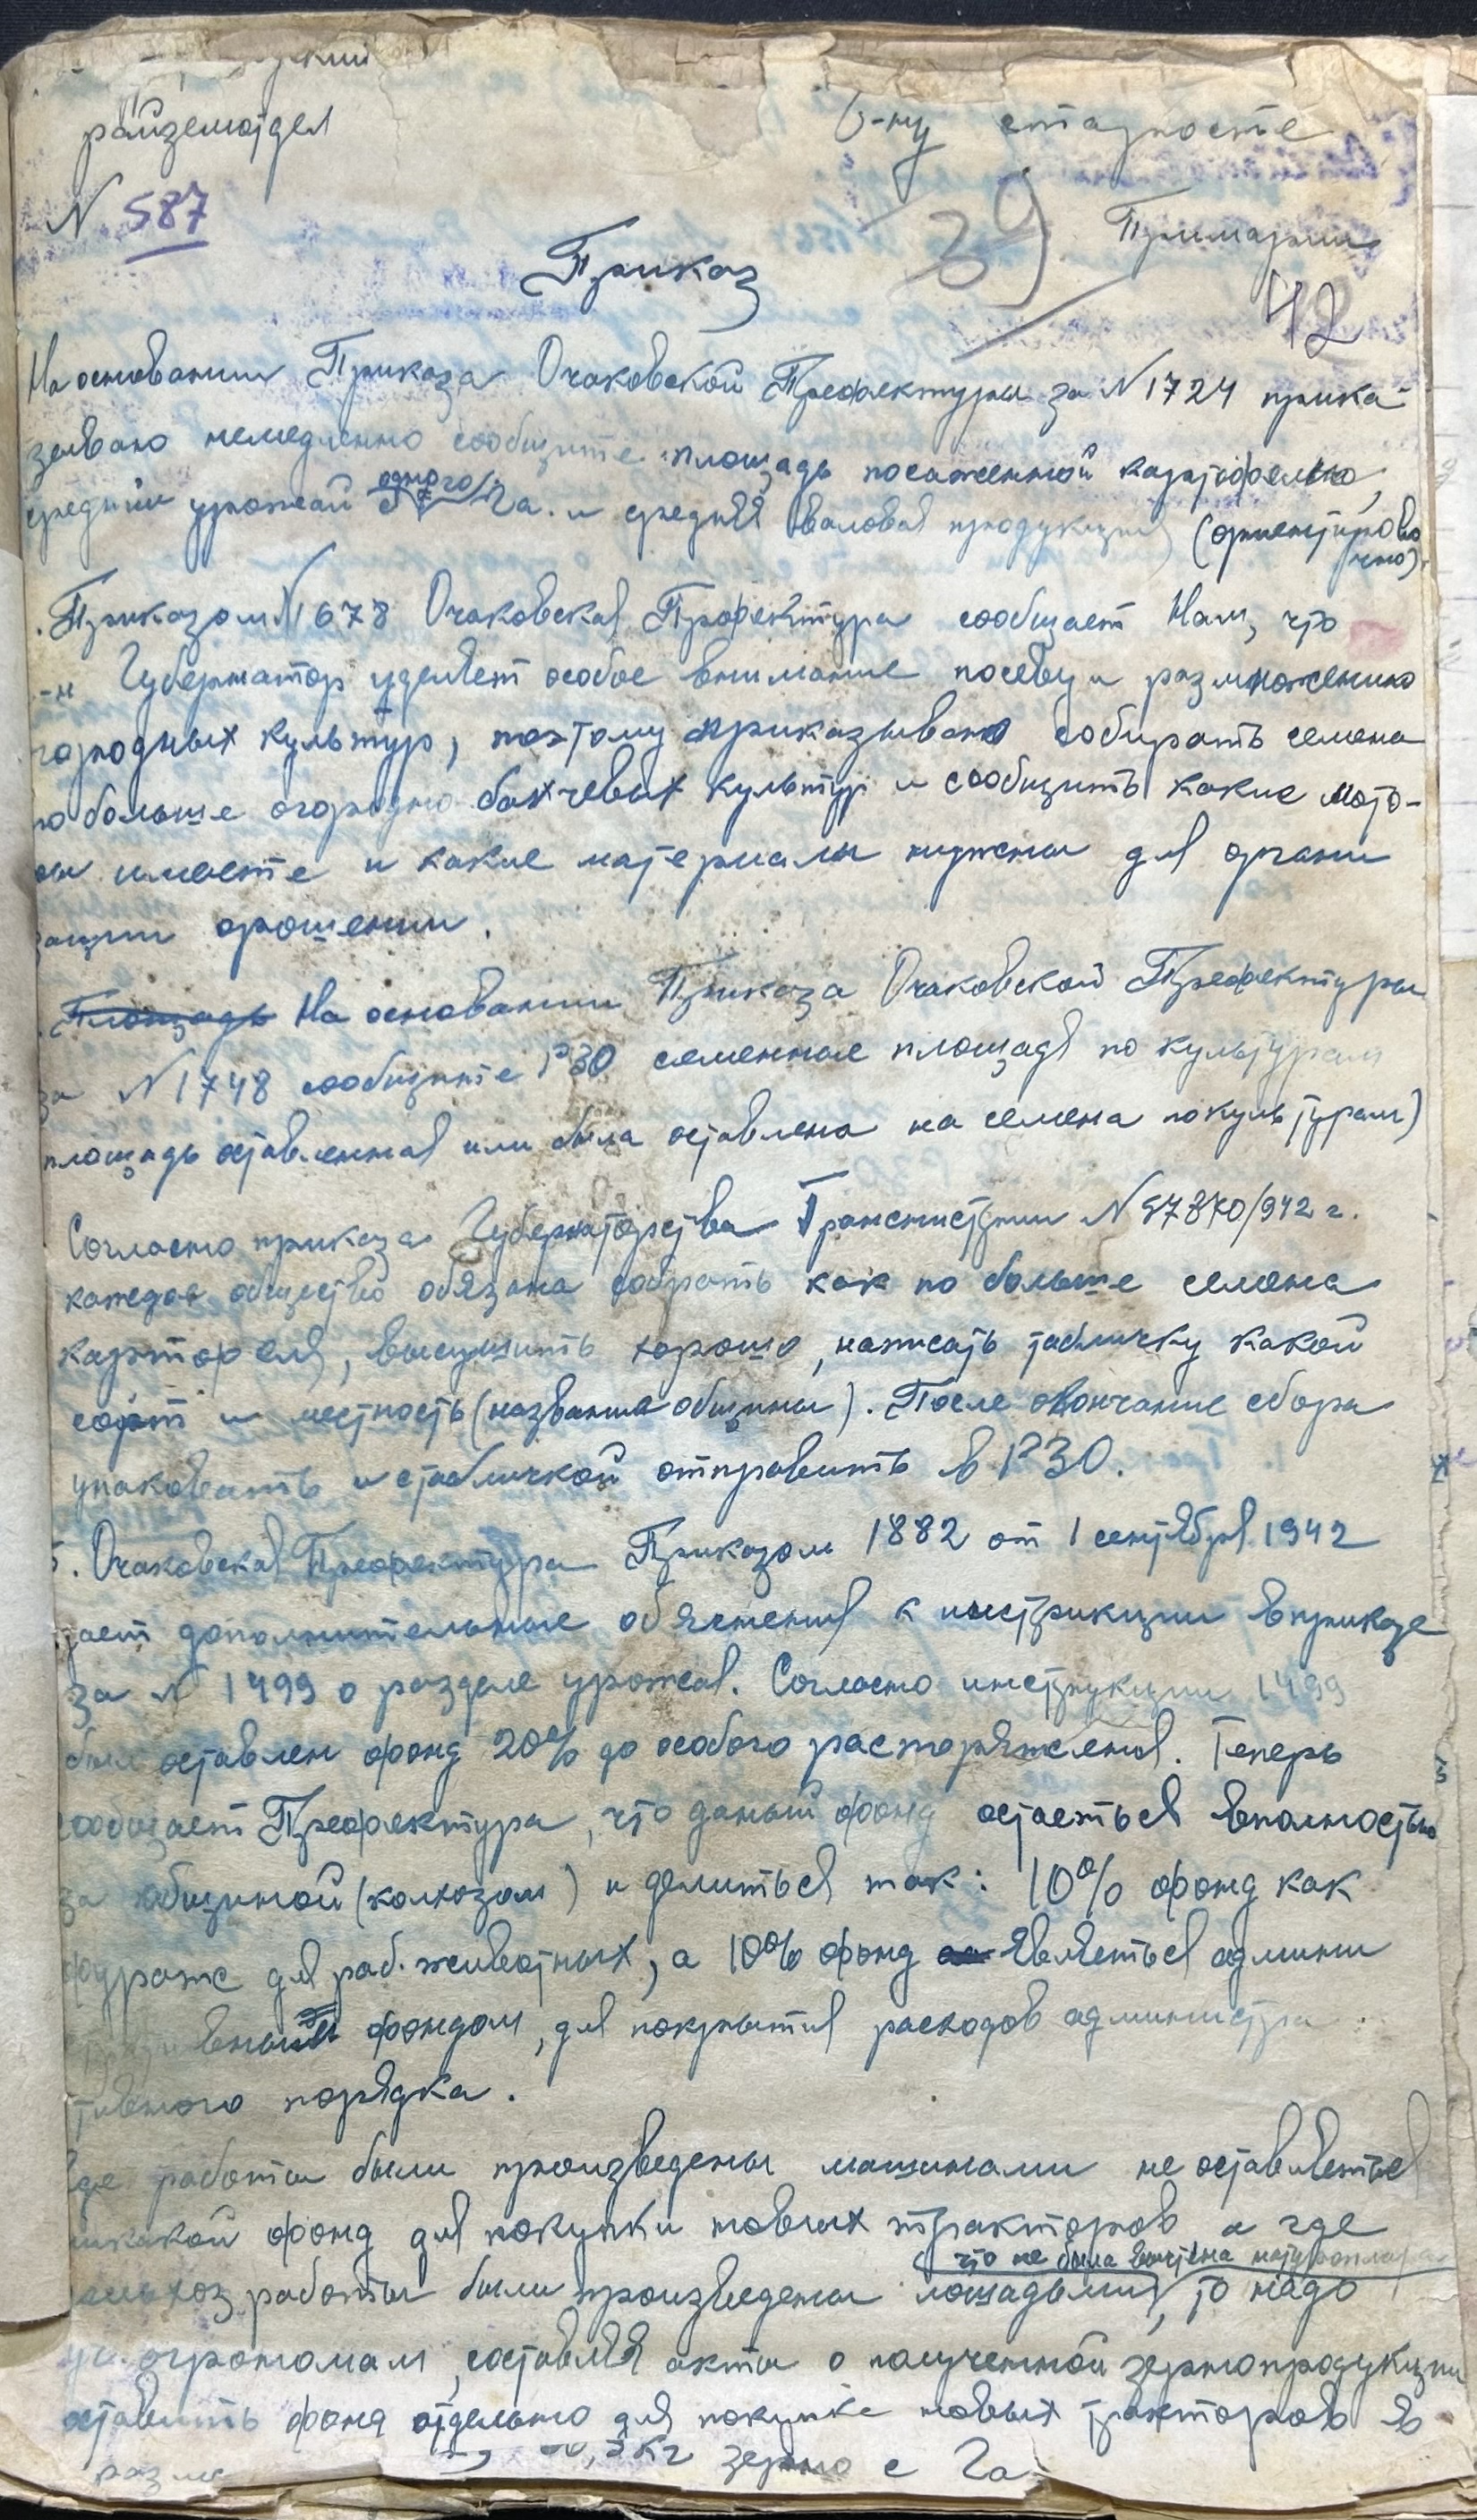 райземотдел
Г-ну старосте
N 587
39 Примарии
Приказ
42
На основании Приказа Очаковской Префектуры за N 1724 прика-
зываю немедленно сообщите площадь посаженной картофелью,
средний урожай с одного га. и средняя валовая продукция (ориентирово
чно).
. Приказом N 1678 Очаковская Префектура сообщает Нам, что
-н Губернатор уделяет особое внимание посеву и размножению
городных культур, поэтому приказываю собирать семена
по больше огородно бахчевых культур и сообщить какие мото-
ры имеете и какие материалы нужны для органи
зации орошении.
. Площадь На основании Приказа Очаковской Префектуры
за N 1748 сообщите РЗО семенные площадя по культурам
площадь оставленная или была оставлена на семена по культурам)
Согласно приказа Губернаторства Транснистрии N 57870/942 г.
каждая общество обязана собрать как по больше семена
картофеля, высушить хорошо, написать табличку какой
сорт и местность (название общины). После окончание сбора
упаковать и с табличкой отправить в РЗО.
5. Очаковская Префектура Приказом 1882 от 1 сентября 1942
дает дополнительные объяснения к инструкции в приказе
за N 1499 о разделе урожая. Согласно инструкции 1499
был оставлен фонд 20% до особого распоряжения. Теперь
сообщает Префектура, что даный фонд остаеться вполностью
за общиной (колхозом) и делиться так: 10% фонд как
фураж для раб. животных, а 10% фонд является админи
вным фондом, для покрытия расходов администра
тивного порядка.
Где работы были произведены машинами не оставляеться
никакой фонд для покупки новых тракторов, а где
что не была вычтена натуроплата
сельхоз работы были произведены лошадьми, то надо
агрономам, составляя акты о полученной зернопродукции
оставить фонд отдельно для покупке новых тракторов в
разме кг зерно с га